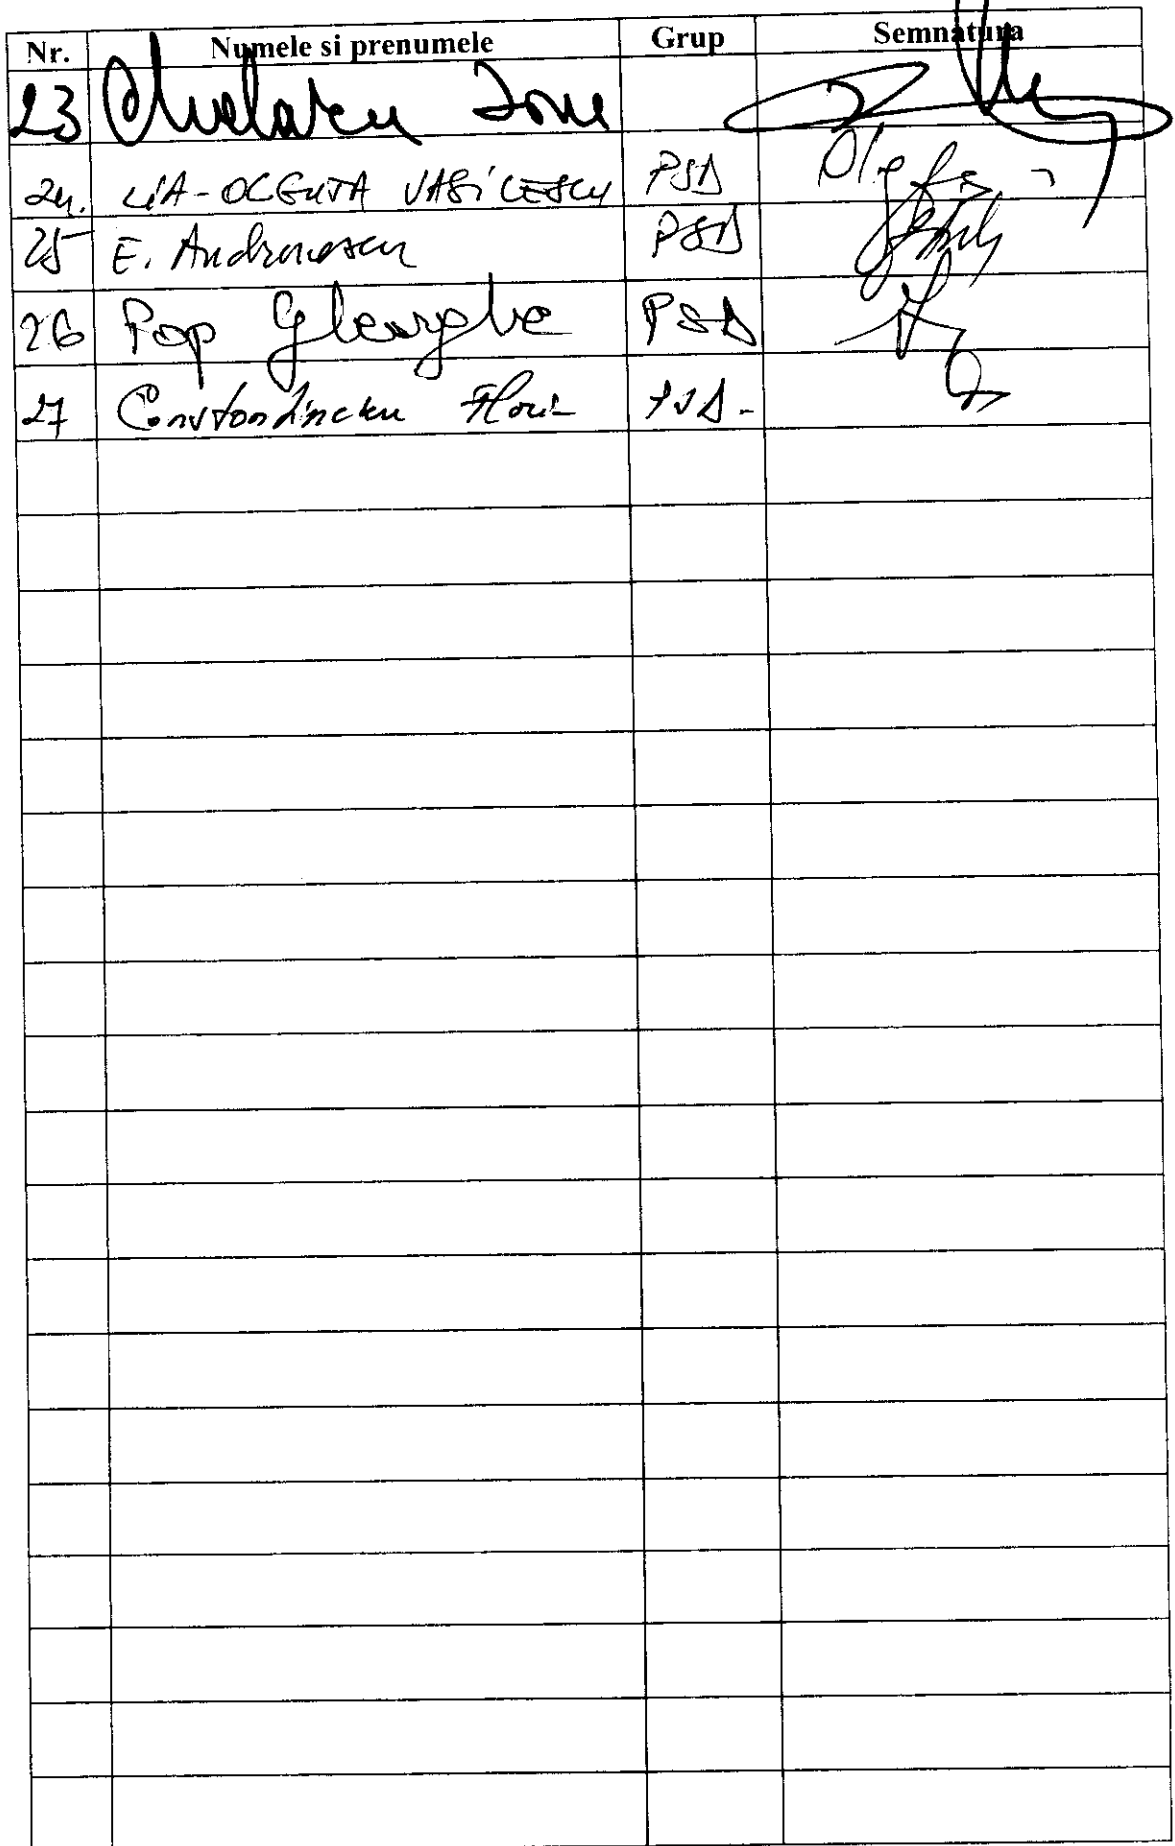 Nr. Numele si prenumele Grup Semnatura
23 Chelaru Ione
24. LIA-OLGUTA VASILESCU PSD
25 E. Andronescu PSD
26 Pop Gheorghe PSD
27 Florin PSD-